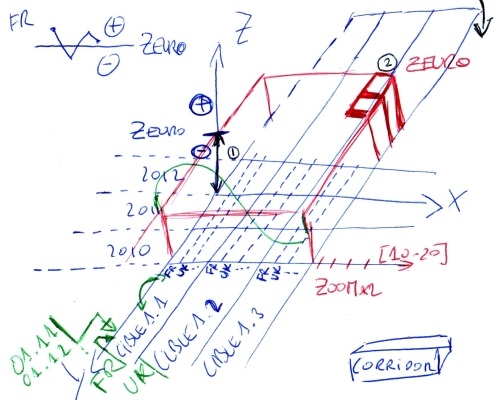 FR
+
ZEURO
−
Z
2
ZEURO
ZEURO
+
−
1
2012
201
X
2010
FR UK
FR UK
FR UK
[10-20]
ZOOMx2
01.11
01.12
Y
FR
UK
CIBLE 1.1
CIBLE 1.2
CIBLE 1.3
CORRIDOR